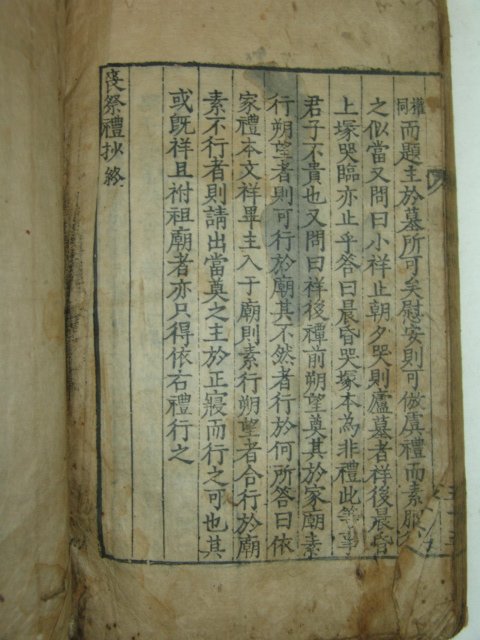 權同而題主於墓所可矣慰安則可倣虞禮而素服
之似當又問曰小祥止朝夕哭則廬墓者祥後晨昏
上塚哭臨亦止乎答曰晨昏哭塚本為非禮此等事
君子不貴也又問曰祥後禫前朔望奠其於家廟素
行朔望者則可行於廟其不然者行於何所答曰依
家禮本文祥畢主入于廟則素行朔望者合行於廟
素不行者則請出當奠之主於正寢而行之可也其
或旣祥且祔祖廟者亦只得依右禮行之
喪祭禮抄終